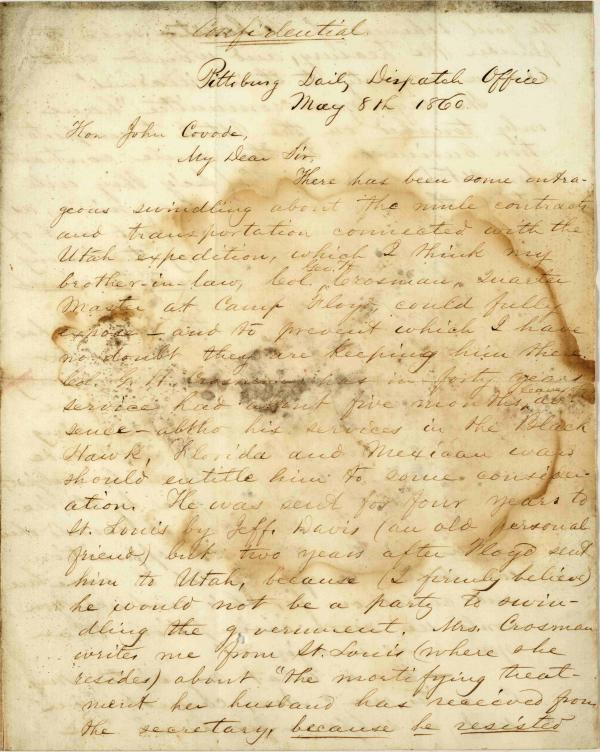 Confidential
Pittsburg Daily Dispatch Office
May 8th 1860.
Hon John Covode,
My Dear Sir,
There has been some outra-
geous swindling about the mule contracts
and transportation connected with the
Utah expedition, which I think my
Geo. H.
brother-in-law, Col. Crosman, Quarter
Master at Camp Floyd could fully
expose – and to prevent which I have
no doubt they are keeping him there.
Col. G. H. Crosman has in forty years
service had about five months ab-
sence – altho his services in the Black
Hawk, Florida and Mexican wars
should entitle him to some consider-
ation. He was sent for four years to
St. Louis by Jeff. Davis (an old personal
friend) but two years after Floyd sent
him to Utah, because (I firmly believe)
he would not be a party to swin-
dling the government. Mrs. Crosman
writes me from St. Louis (where she
resides) about "the mortifying treat-
ment her husband has received from
the secretary, because he resisted